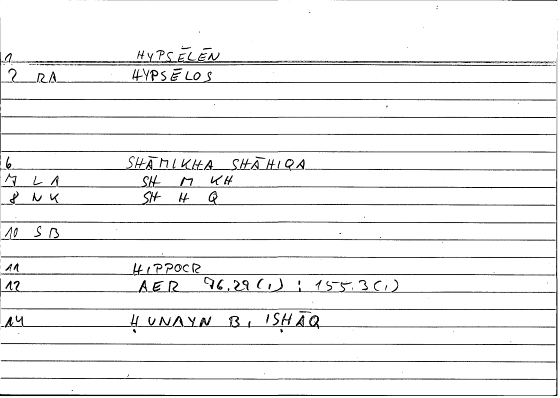 1 HYPSĒLĒN
2 RA HYPSĒLOS
6 SHĀMIKHA SHĀHIQA
7 LA SH M KH
8 NK SH H Q
10 SB
11 HIPPOCR
12 AER 76.29(1) : 155.3(1)
14 ḤUNAYN B. ISḤĀQ